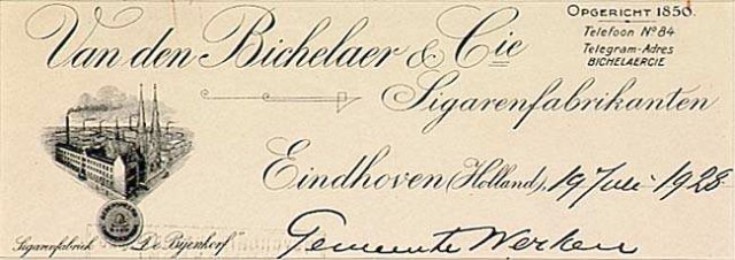 Van den Bichelaer & Cie
OPGERICHT 1850.
Telefoon No 84
Telegram-Adres
BICHELAERCIE
Sigarenfabrikanten
Eindhoven (Holland), 19 Juli 1928
Sigarenfabriek "De Bijenkorf"
Gemeente Werken